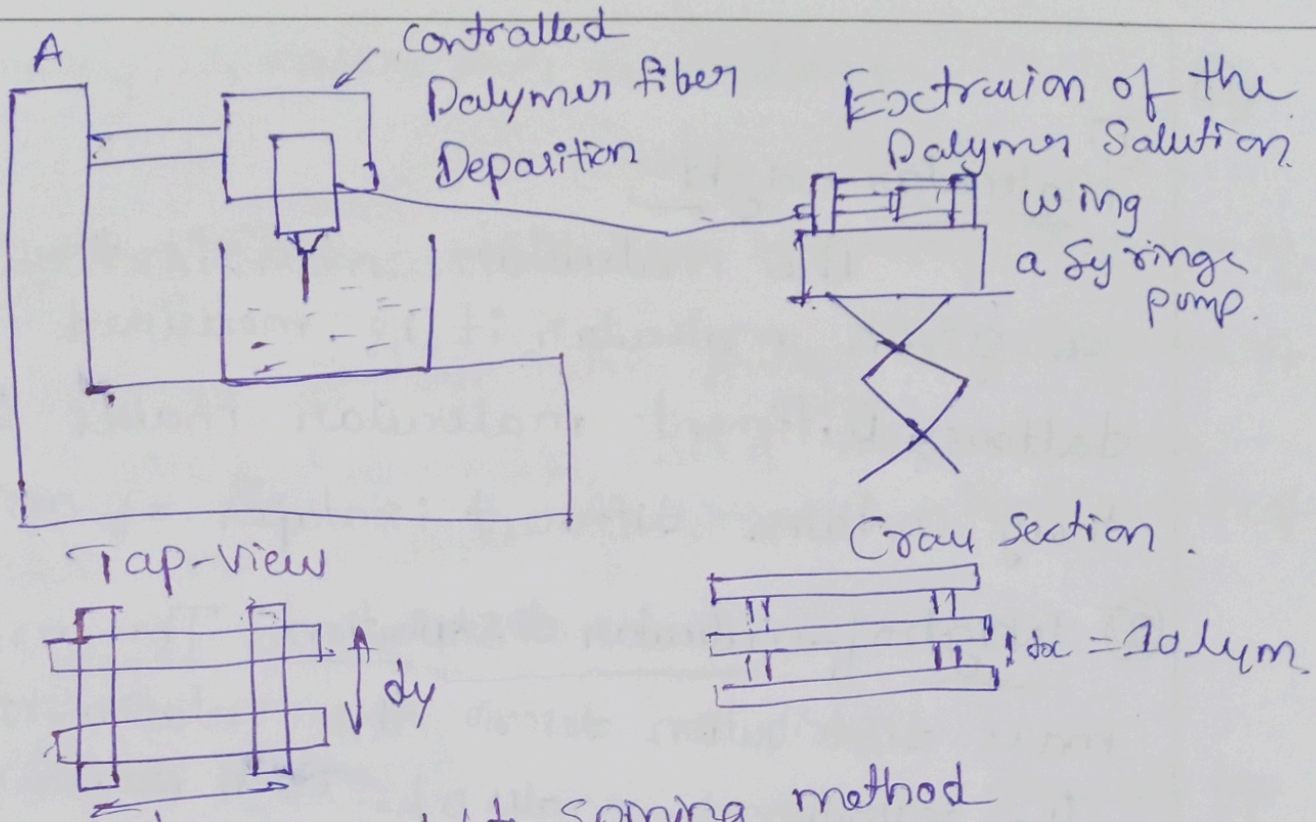 A
Contralled
Palymer fiber
Depasition
Extruion of the
Palymer Salution
using
a Syringe
pump.
Tap-view
dy
Crau section.
dx =
spining method